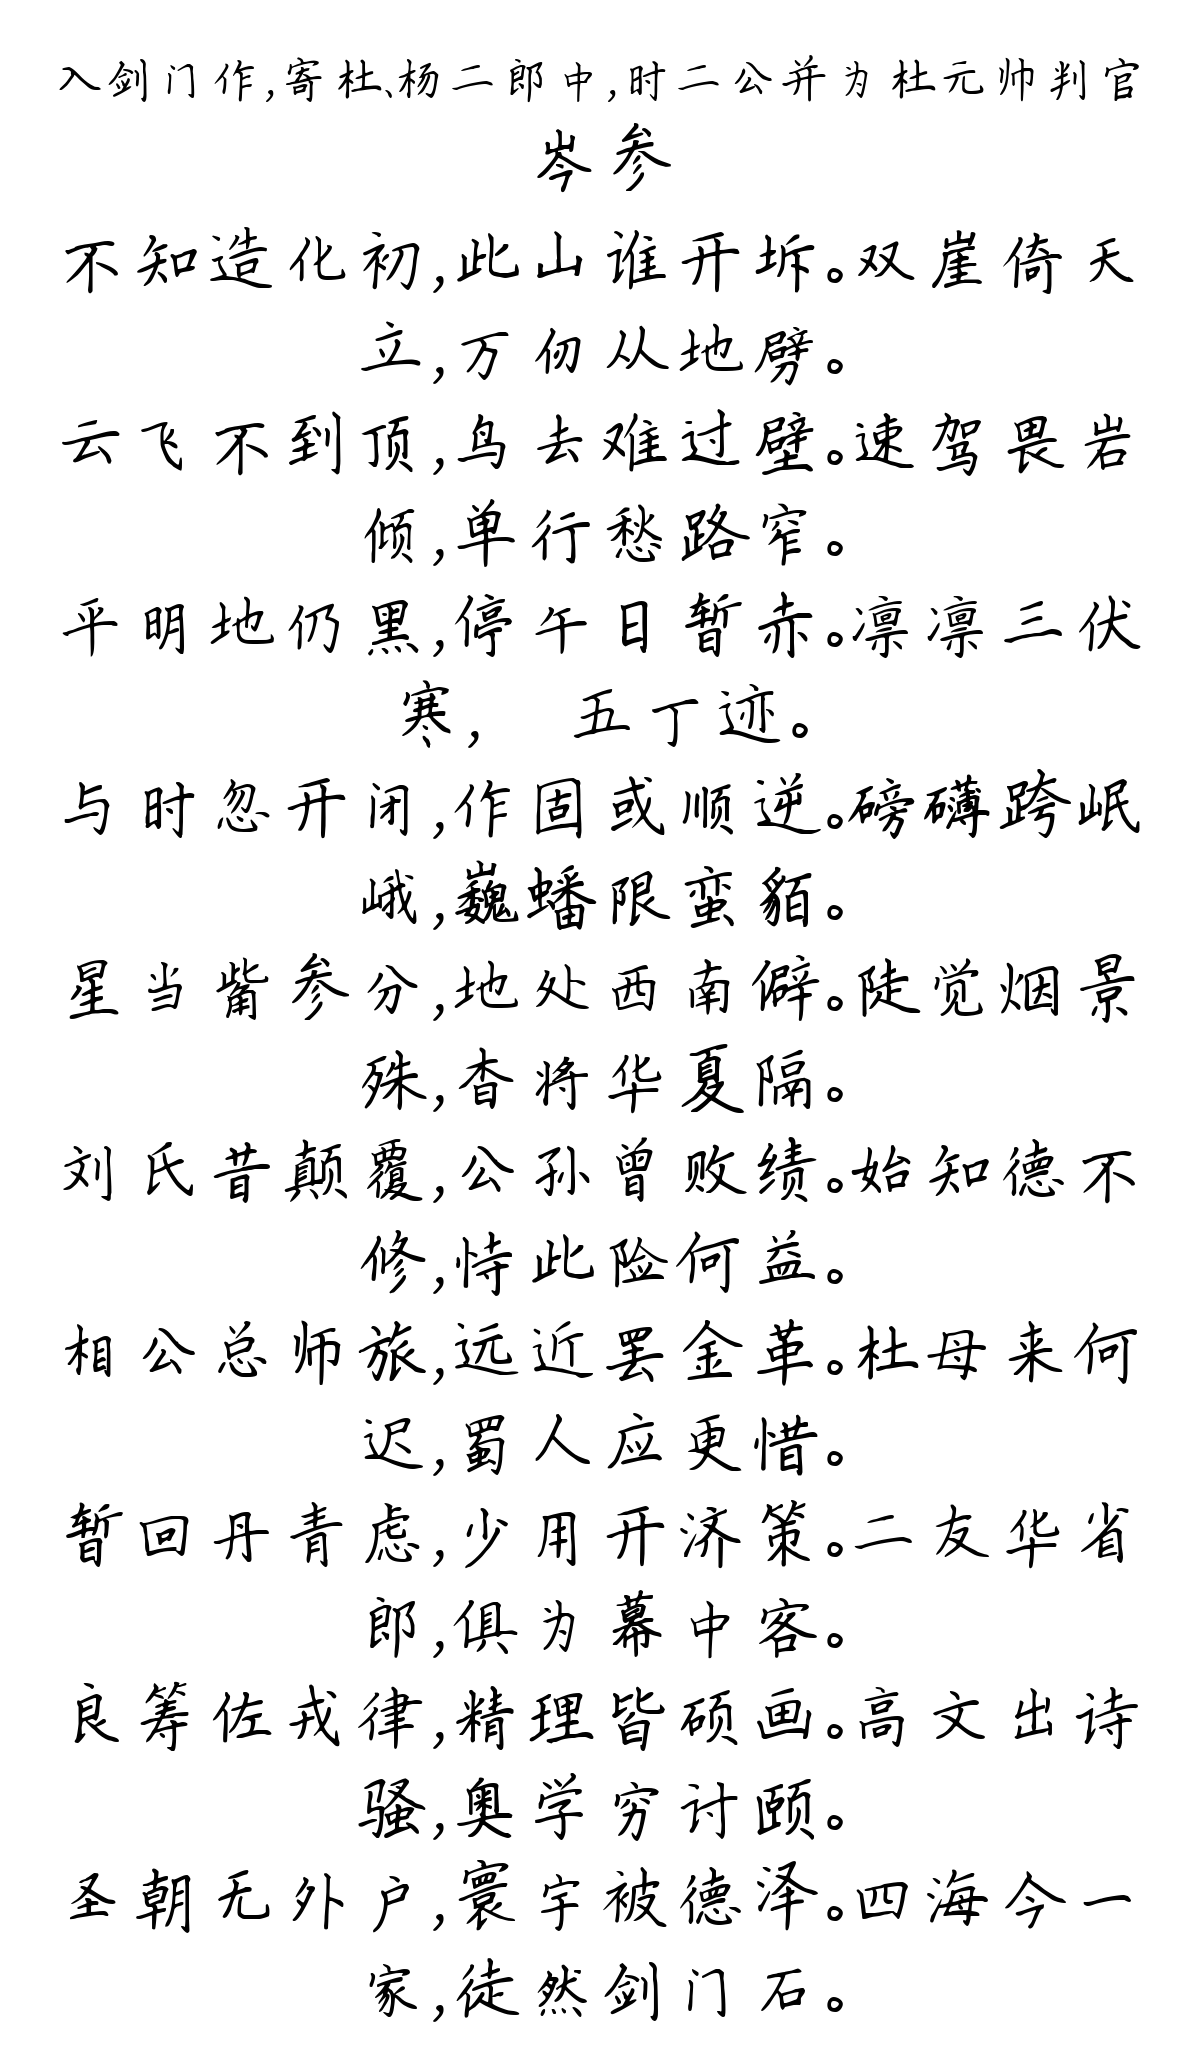 入剑门作,寄杜、杨二郎中,时二公并为杜元帅判官
岑参
不知造化初,此山谁开坼。双崖倚天
立,万仞从地劈。
云飞不到顶,鸟去难过壁。速驾畏岩
倾,单行愁路窄。
平明地仍黑,停午日暂赤。凛凛三伏
寒, 五丁迹。
与时忽开闭,作固或顺逆。磅礴跨岷
峨,巍蟠限蛮貊。
星当觜参分,地处西南僻。陡觉烟景
殊,杳将华夏隔。
刘氏昔颠覆,公孙曾败绩。始知德不
修,恃此险何益。
相公总师旅,远近罢金革。杜母来何
迟,蜀人应更惜。
暂回丹青虑,少用开济策。二友华省
郎,俱为幕中客。
良筹佐戎律,精理皆硕画。高文出诗
骚,奥学穷讨颐。
圣朝无外户,寰宇被德泽。四海今一
家,徒然剑门石。